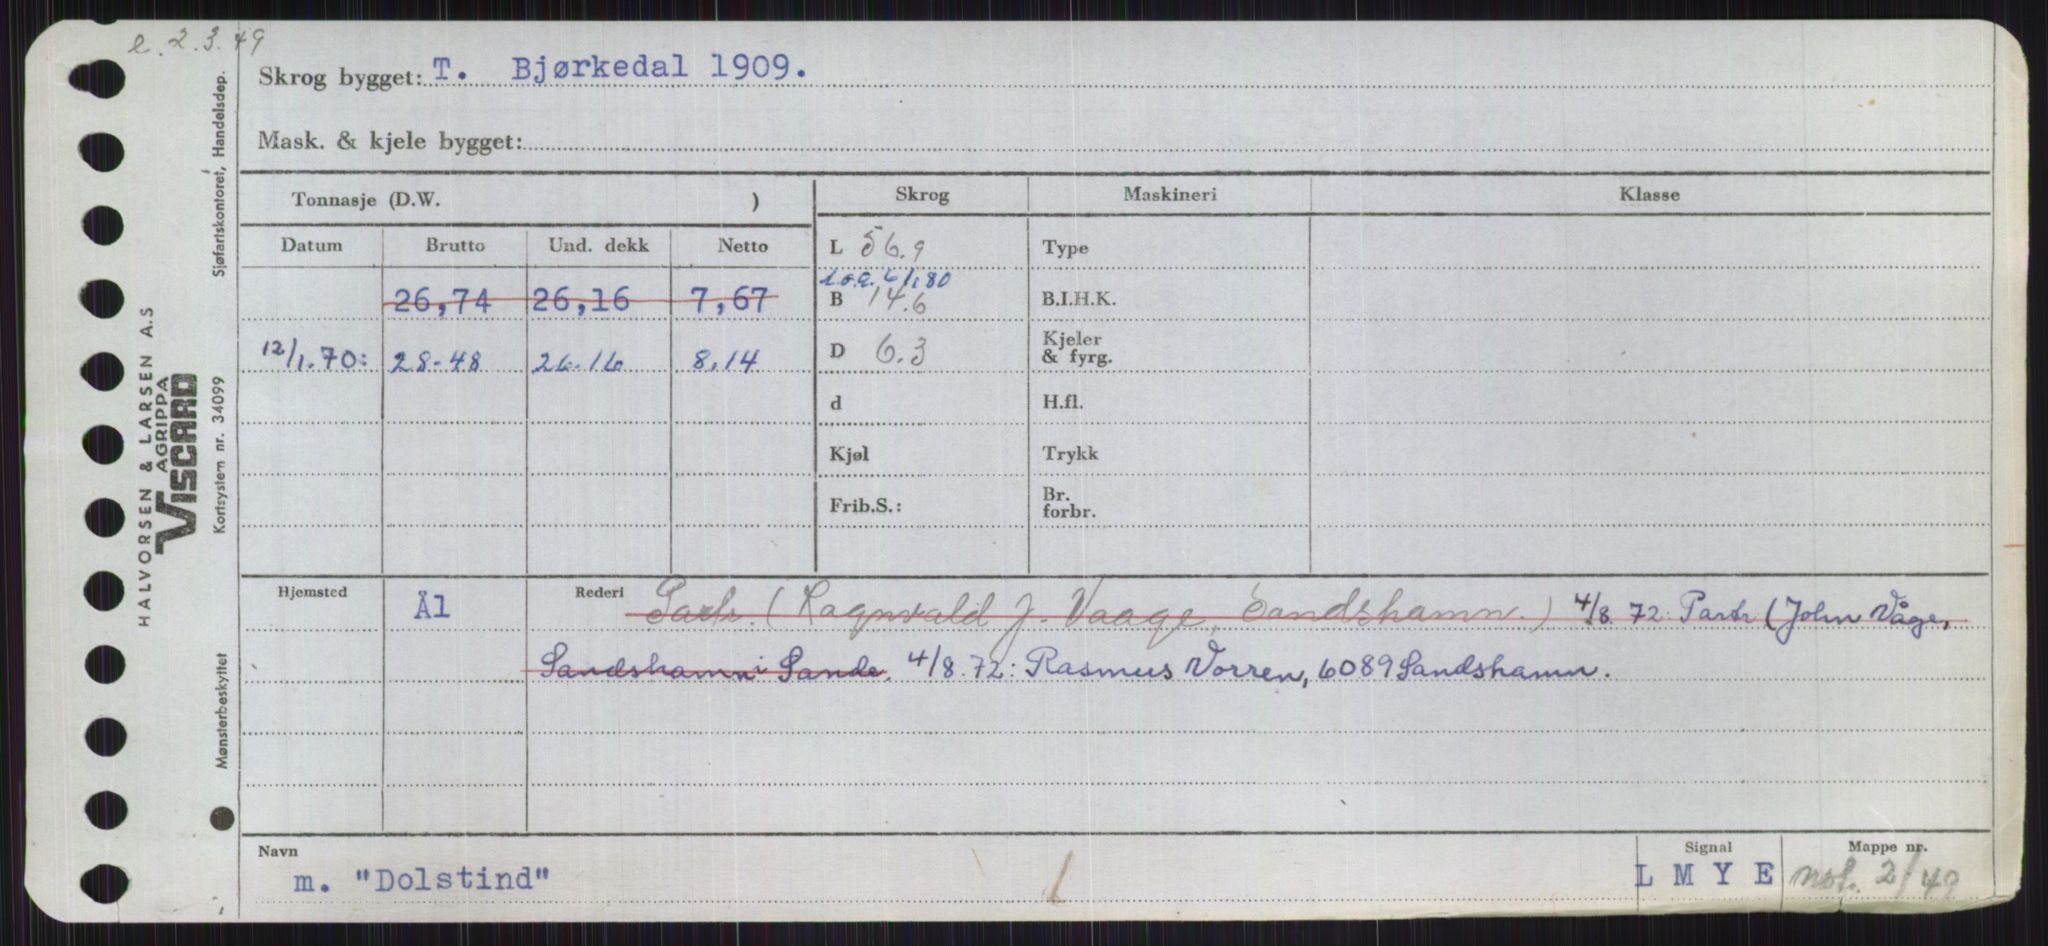 e. 2.3.49
Skrog bygget: T. Bjørkedal 1909.
Mask. & kjele bygget:
Tonnasje (D.W. )
Skrog
Maskineri
Klasse
Datum
Brutto
Und. dekk
Netto
L 56.9
Type
26,74 26,16 7,67
l.o.a. 61,80
B 14.6
B.I.H.K.
12/1.70: 28.48 26.16 8.14
D 6.3
Kjeler
& fyrg.
d
H.fl.
Kjøl
Trykk
Frib.S.:
Br.
forbr.
Hjemsted
Ål
Rederi
Partr. (Ragnvald J. Vaage, Sandshamn.) 4/8.72: Partr (John Våge,
Sandshamn i Sande. 4/8.72: Rasmus Vorren, 6089 Sandshamn.
Navn
m. "Dolstind"
Signal
L M Y E
Mappe nr.
not. 2/49
HALVORSEN & LARSEN A.S
AGRIPPA
VISCARD
Mønsterbeskyttet
Kortsystem nr. 34099
Sjøfartskontoret, Handelsdep.